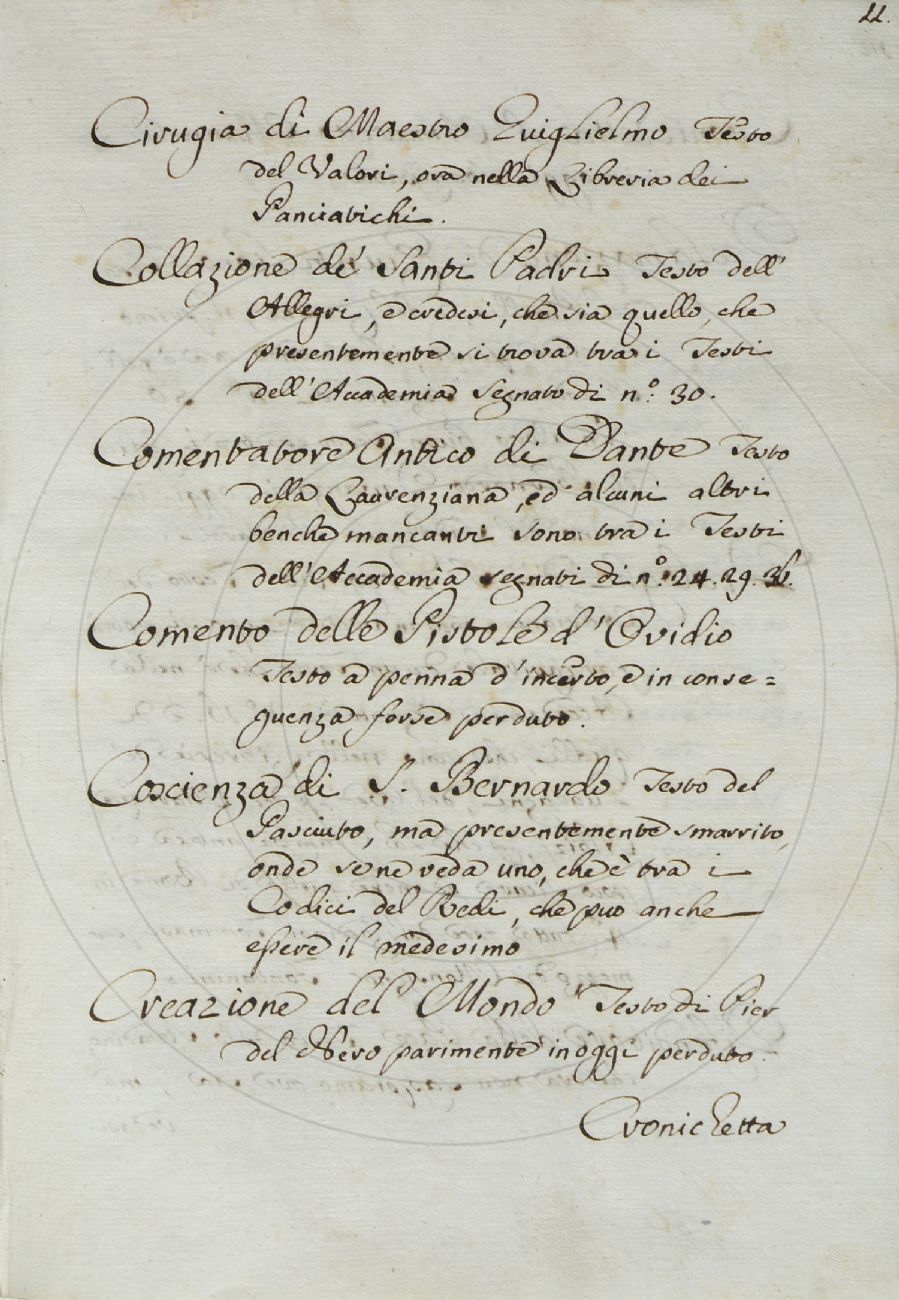 11.
Cirugia di Maestro Guiglielmo Testo
del Valori, ora nella Libreria dei
Panciatichi.
Collazione de' Santi Padri Testo dell'
Allegri, e credesi, che sia quello, che
presentemente si trova tra i Testi
dell'Accademia segnato di n.º 30.
Comentatore Antico di Dante Testo
della Laurenziana, ed alcuni altri
benche mancanti sono tra i Testi
dell'Accademia segnati di nº. 24. 29.
Comento delle Pistole d'Ovidio
Testo a penna d'incerto, e in conse=
guenza forse perduto.
Coscienza di S. Bernardo Testo del
Pasciuto, ma presentemente smarrito,
onde se ne veda uno, che è tra i
Codici del Redi, che può anche
essere il medesimo
Creazione del Mondo Testo di Pier
del Nero parimente in oggi perduto.
Cronichetta